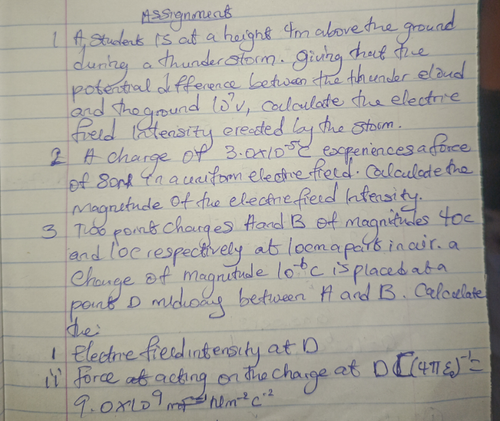 Assignment
1 A student is at a height 4m above the ground
during a thunderstorm. Giving that the
potential difference between the thunder cloud
and the ground 10⁷v, calculate the electric
field Intensity created by the storm.
2 A charge of 3.0x10⁻⁵C experiences a force
of in a uniform electric field. Calculate the
magnitude of the electric field Intensity.
3 Two point Charges A and B of magnitudes 40c
and 10c respectively at 10cm apart in air. a
Charge of magnitude 10⁻⁶c is placed at a
point D midway between A and B. Calculate
the:
i Electric field intensity at D
ii Force acting on the charge at D [(4πε₀)⁻¹=
9.0x10⁹ Nm⁻²c⁻²